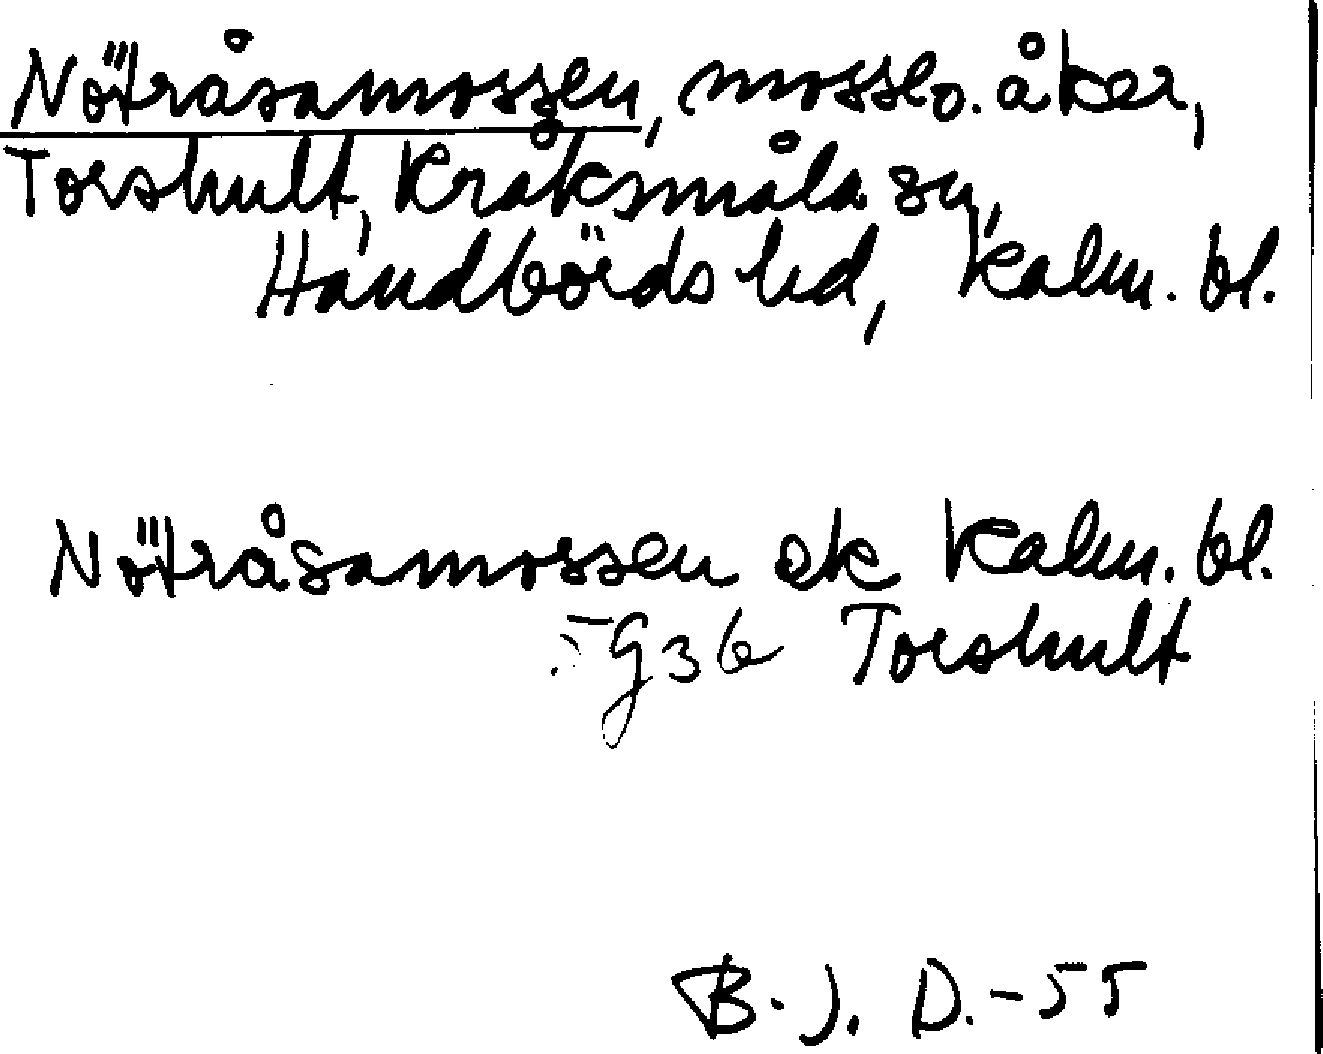 Nötråsamossen, mosse o. åker,
Torshult, Kråksmåla sn,
Handbörds hd, Kalm. bl.
Nötråsamossen ek Kalm. bl.
5G3b Torshult
B. J. D. -55